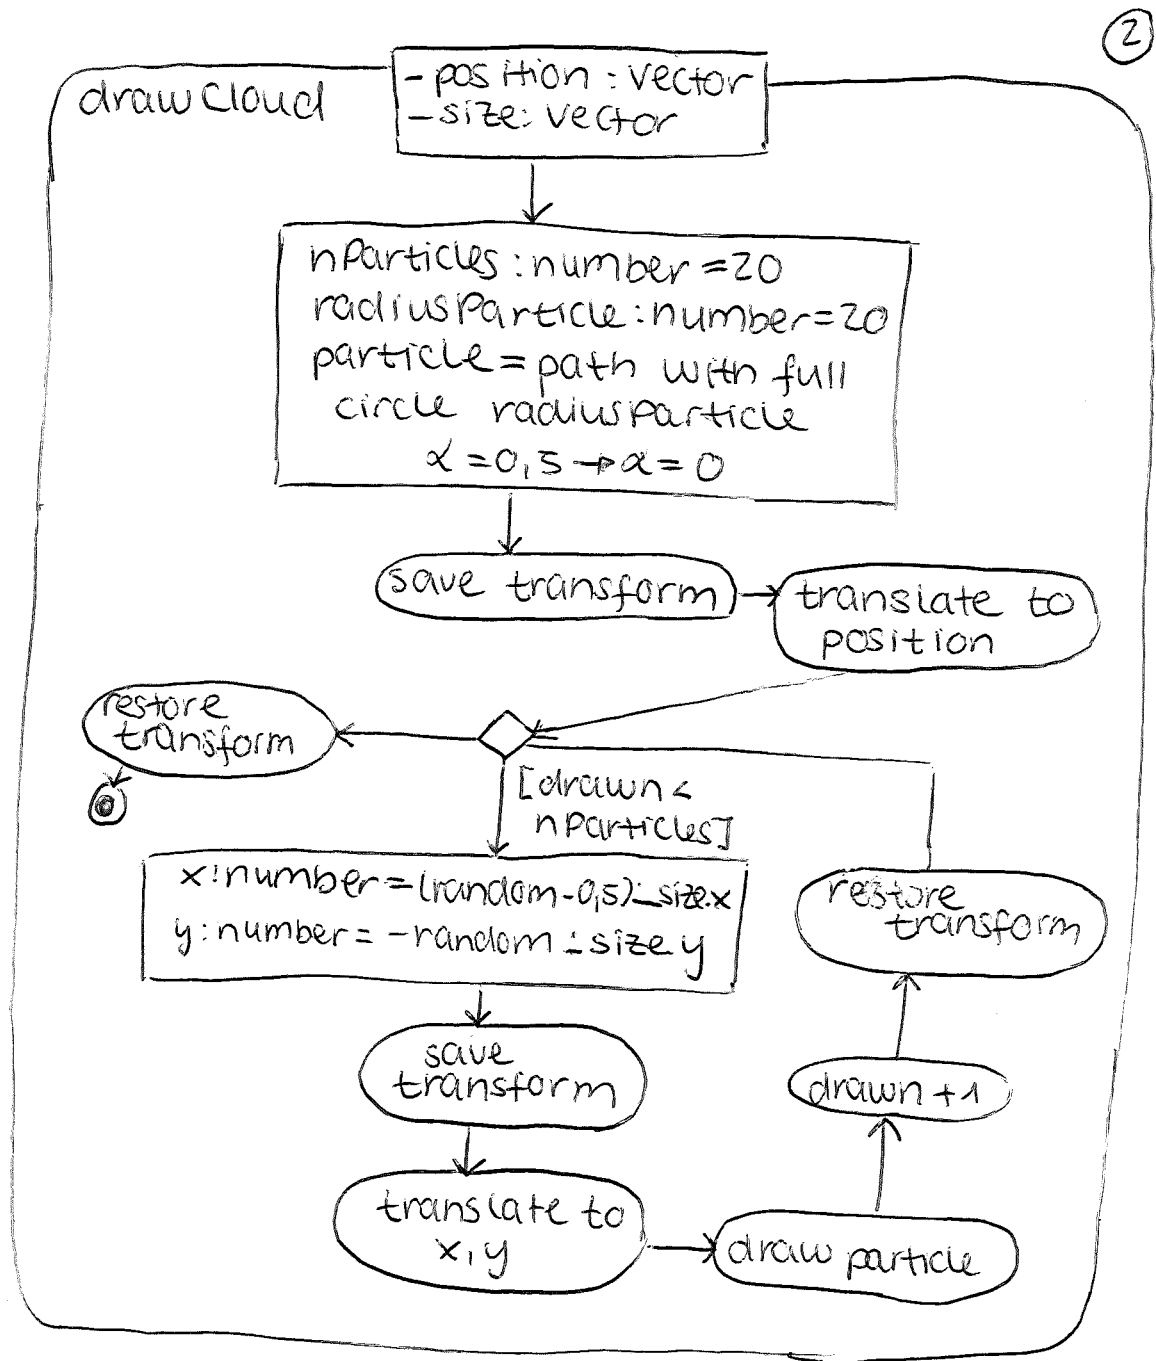 2
drawCloud
_position : Vector
_size: Vector
nParticles : number = 20
radiusParticle : number = 20
particle = path with full
circle radiusParticle
α = 0,5 → α = 0
save transform
translate to
position
restore
transform
[drawn <
nParticles]
x: number = (random - 0,5) · _size.x
y: number = - random · _size.y
restore
transform
save
transform
drawn +1
translate to
x, y
draw particle